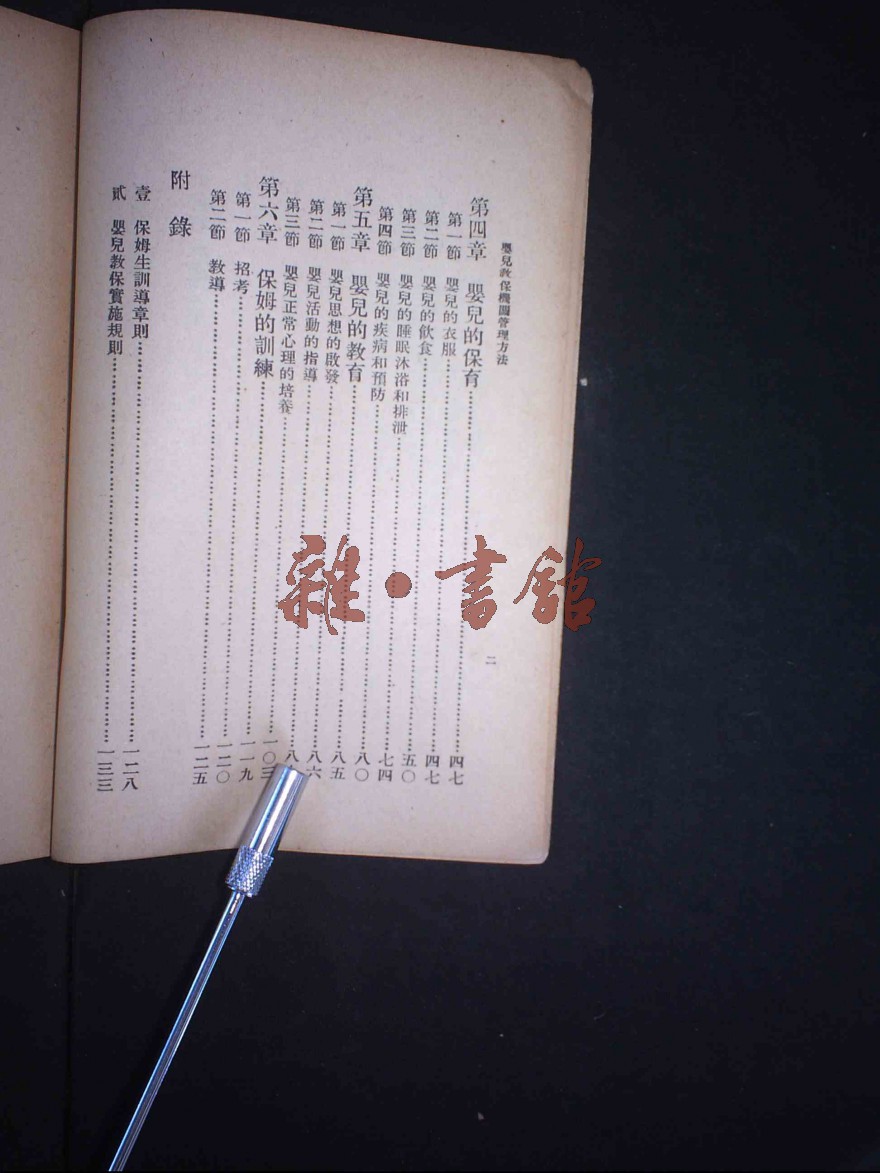 嬰兒教保機關管理方法
二
第四章 嬰兒的保育……四七
第一節 嬰兒的衣服……四七
第二節 嬰兒的飲食……五〇
第三節 嬰兒的睡眠沐浴和排泄……七四
第四節 嬰兒的疾病和預防……八〇
第五章 嬰兒的教育……八五
第一節 嬰兒思想的啟發……八六
第二節 嬰兒活動的指導……八
第三節 嬰兒正常心理的培養……一〇三
第六章 保姆的訓練……一一九
第一節 招考……一二〇
第二節 教導……一二五
附錄
壹 保姆生訓導章則……一二八
貳 嬰兒教保實施規則……一三三
雜·書館